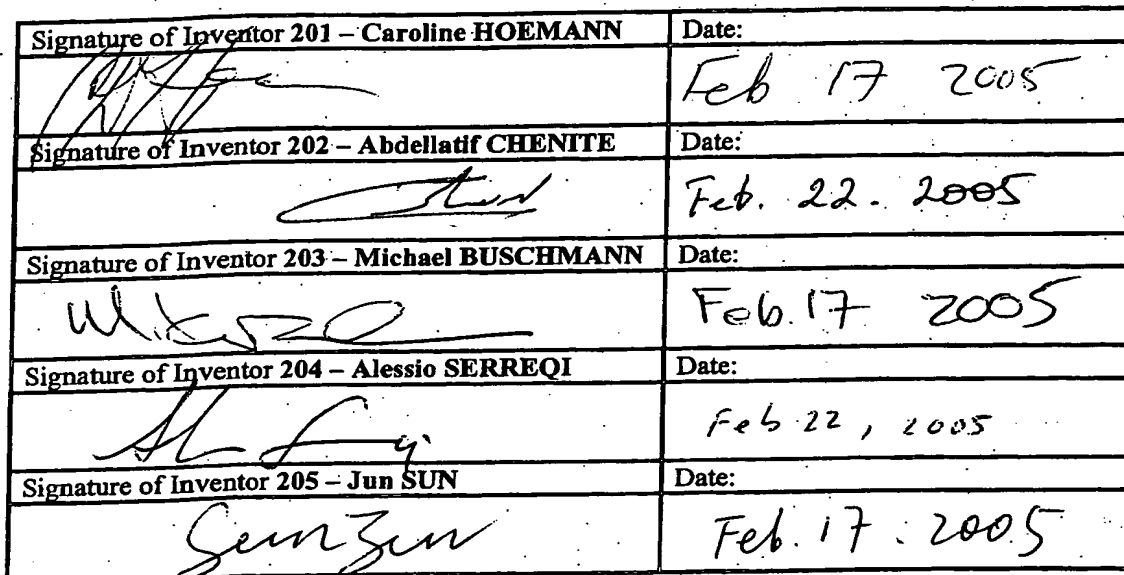 Signature of Inventor 201 – Caroline HOEMANN Date:
Feb 17 2005
Signature of Inventor 202 – Abdellatif CHENITE Date:
Feb. 22. 2005
Signature of Inventor 203 – Michael BUSCHMANN Date:
Feb. 17 2005
Signature of Inventor 204 – Alessio SERREQI Date:
Feb 22, 2005
Signature of Inventor 205 – Jun SUN Date:
Feb. 17. 2005